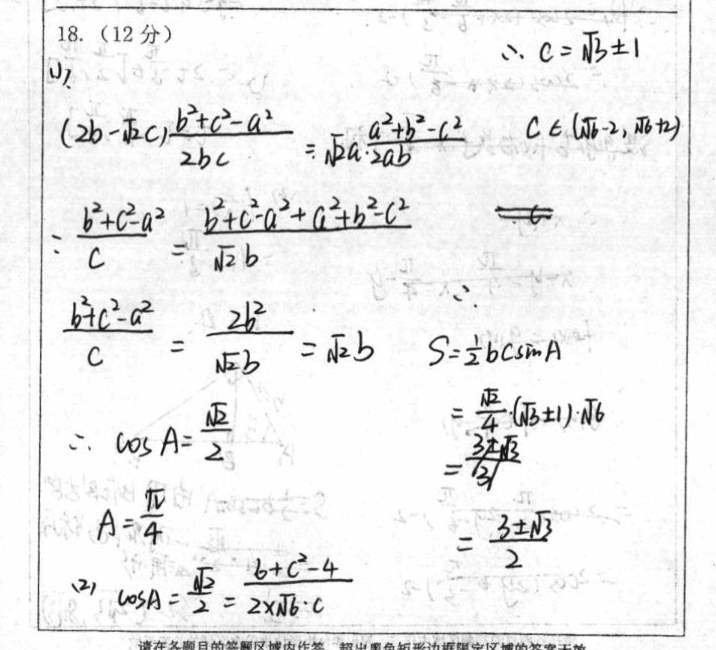 18.（12分）
(1)、
(2b-√2c)·(b²+c²-a²)/(2bc) = √2a·(a²+b²-c²)/(2ab)
∴ (b²+c²-a²)/c = (b²+c²-a²+a²+b²-c²)/(√2b)
(b²+c²-a²)/c = 2b²/(√2b) = √2b
∴ cosA = √2/2
A = π/4
(2) cosA = √2/2 = (6+c²-4)/(2×√6·c)
∴ c = √3±1
c∈(√6-2, √6+2)
∴
S = ½bcsinA
= √2/4·(√3±1)·√6
= (3±√3)/2
请在各题目的答题区域内作答，超出黑色矩形边框限定区域的答案无效